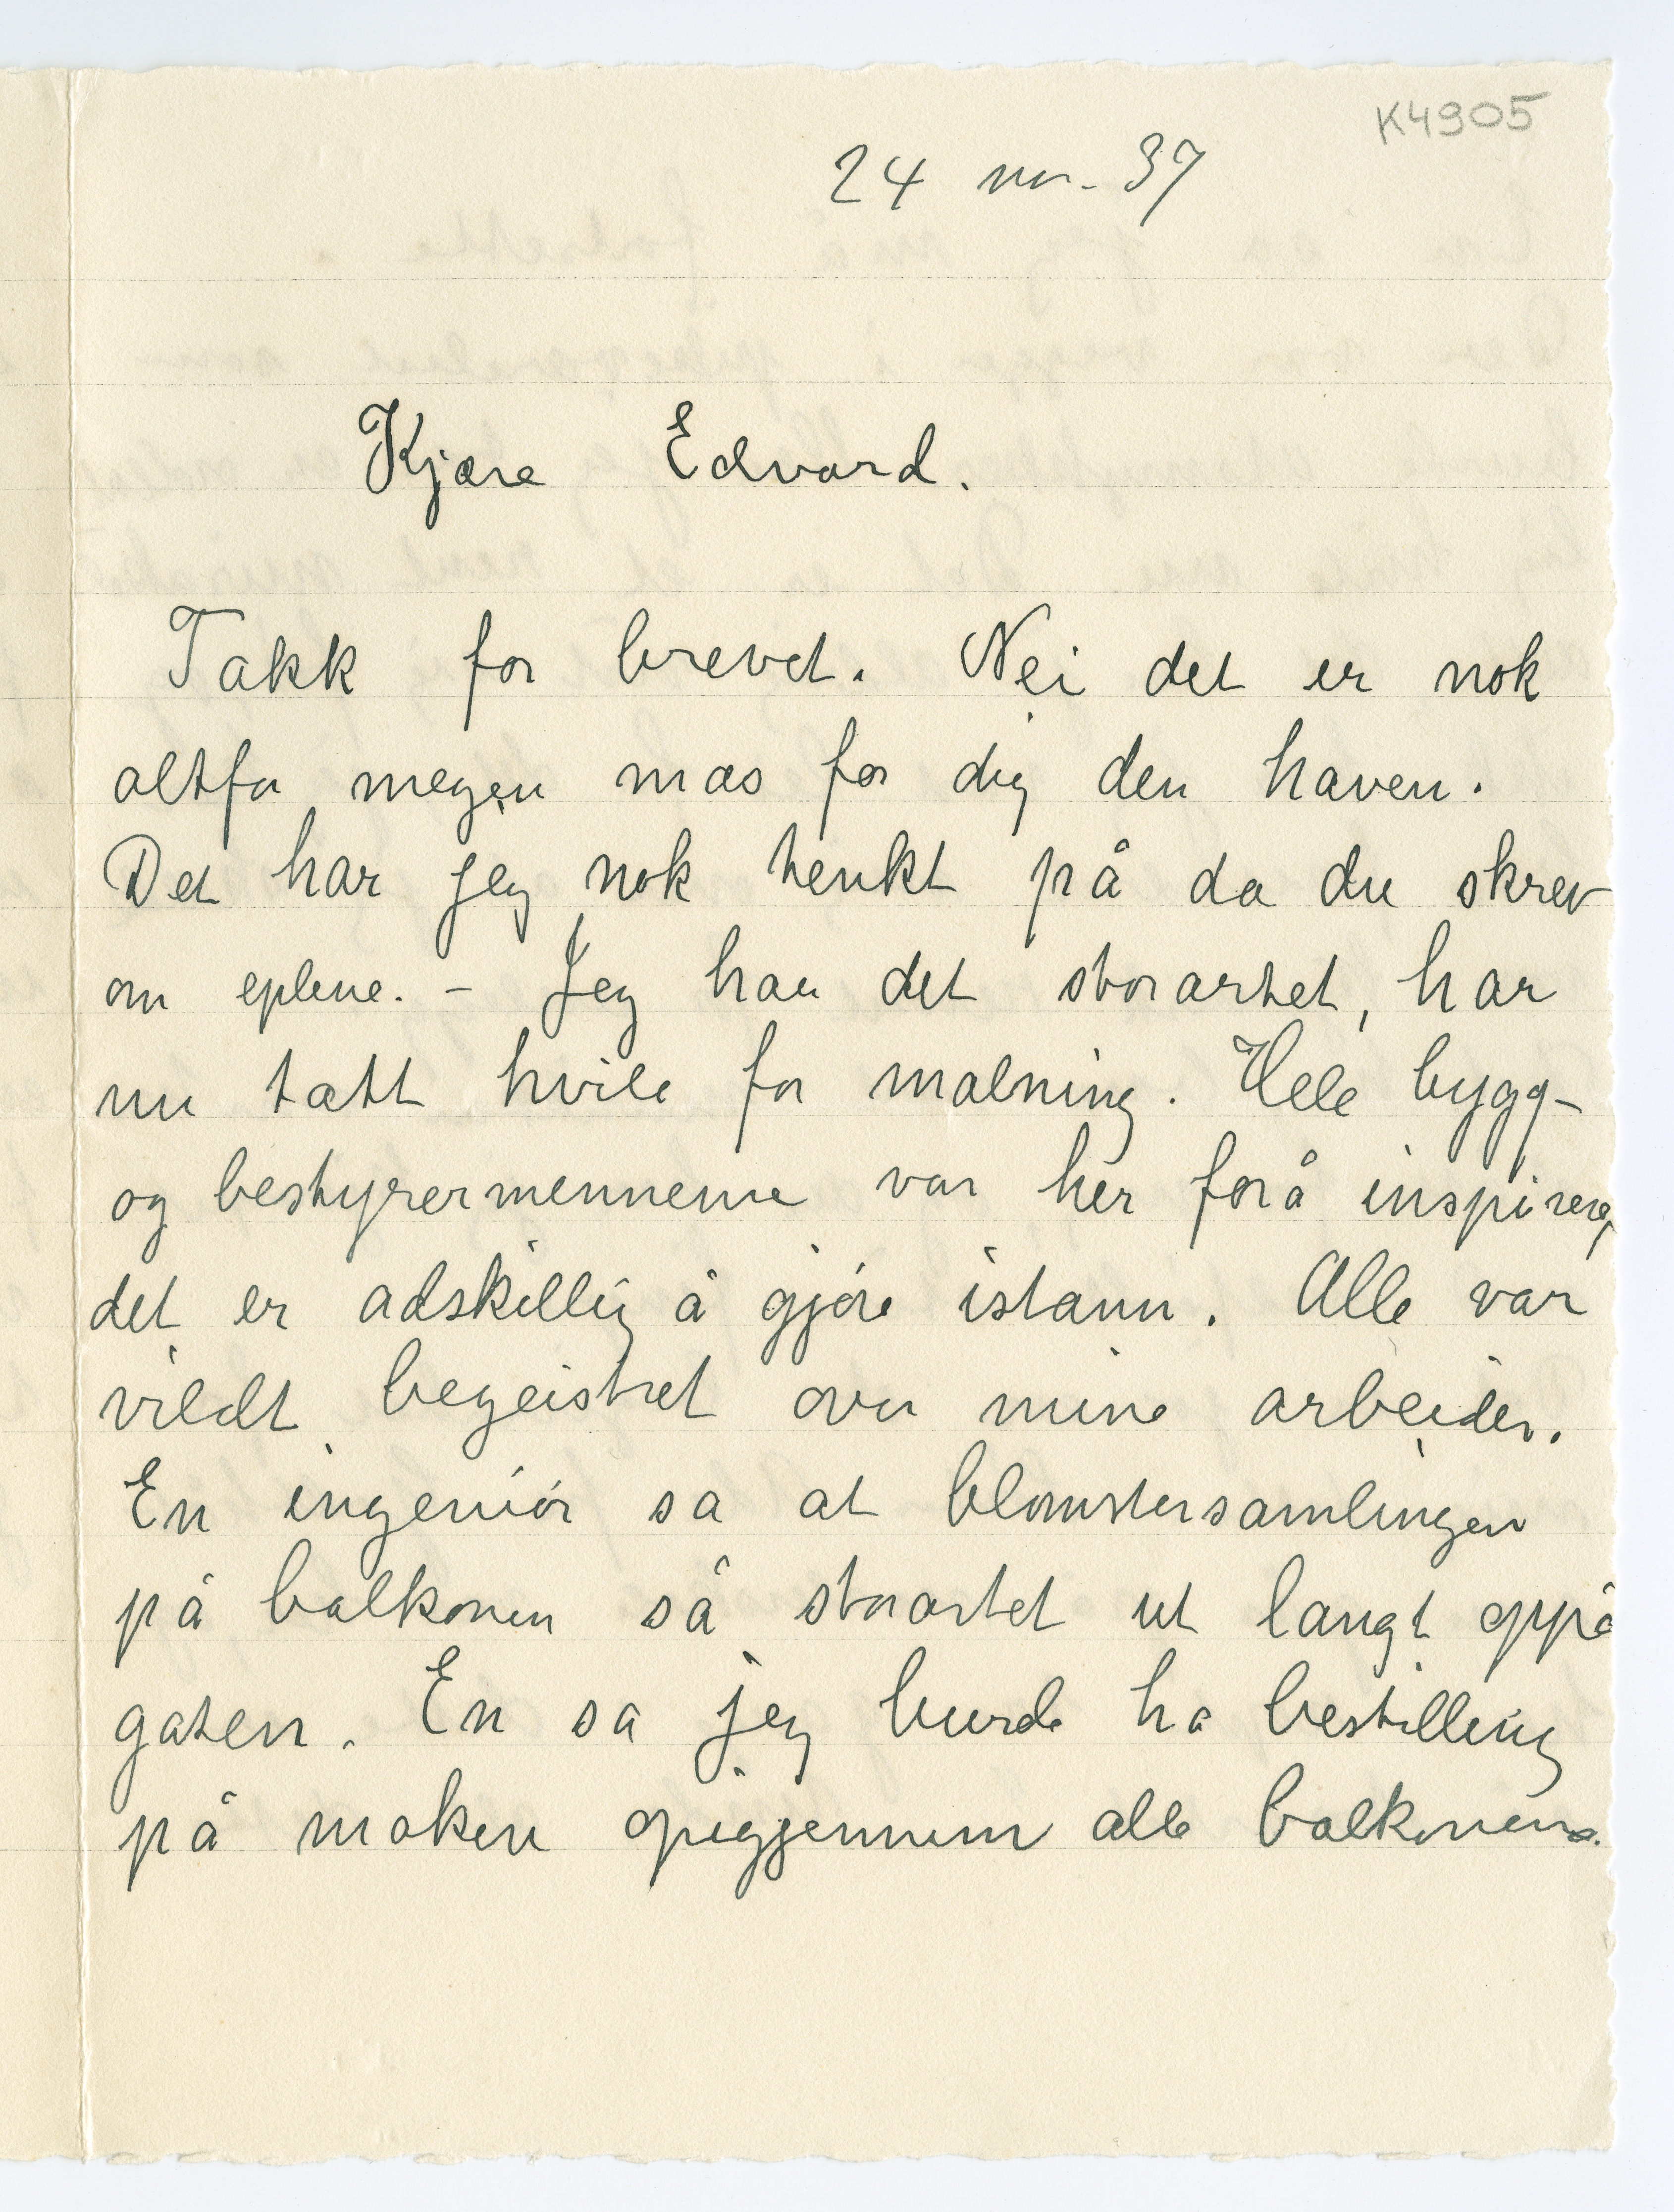 K4905
24 nov. 37
Kjære Edvard.
Takk for brevet. Nei det er nok
altfor megen mas for dig den haven.
Det har jeg nok tenkt på da du skrev
om eplene. - Jeg har det storartet, har
nu tatt hvile for malning. Hele bygg-
og bestyrermennene var her forå inspirere,
det er adskillig å gjøre istann. Alle var
vildt begeistret over mine arbeider.
En ingeniør sa at blomstersamlingen
på balkonen så storartet ut langt oppå
gaten. En sa jeg burde ha bestilling
på maken opigjennem alle balkonene.